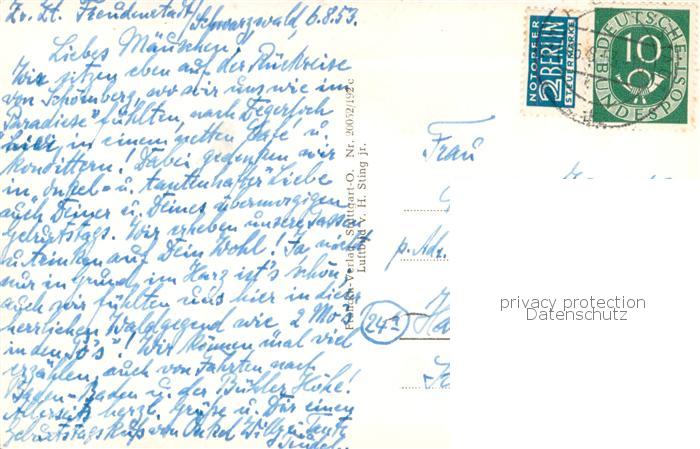 Zr. Zt. Freudenstadt/
Schwarzwald, 6.8.53.
Liebes Mäuschen!
Wir sitzen eben auf der Rückreise
von Schömberg, wo wir uns wie im
"Paradiese" fühlten, nach
hier in einem netten Café u.
konditern! Dabei gedenken wir
in onkel- u. tantenhafter Liebe
auch Deiner u. Deines übermorgigen
Geburtstags. Wir erheben unsere Tassen
u. trinken auf Dein Wohl! Ja, nicht
nur in grund, im Harz ist's schön
auch wir fühlten uns hier in die
herrlichen Waldgegend wie 2 Mo-
in den! Wir können mal viel
erzählen, auch von Fahrten nach
Baden-Baden u. der Bühler Höhe!
Allerseits herzl. Grüße u. Dir einen
Geburtstagskuß von Onkel Willy u. Tante
Franckh-Verlag, Stuttgart-O. Nr. 20052/192 c
Luftbild v. H. Sting jr.
NOTOPFER
2 BERLIN
STEUERMARKE
DEUTSCHE
10
BUNDESPOST
Frau
p. Adr.
(24a)
privacy protection
Datenschutz